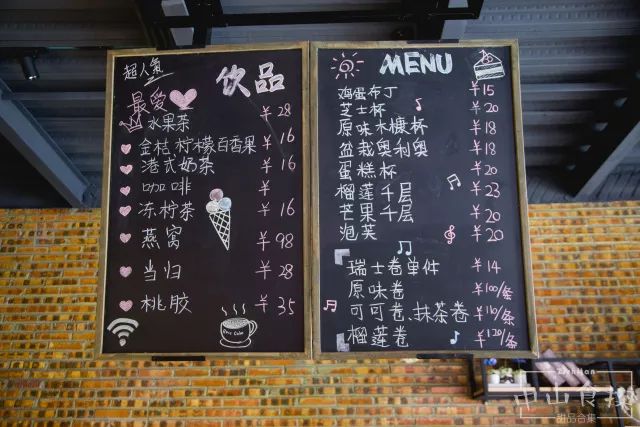 超人氣
饮品
最爱
水果茶 ¥28
金桔柠檬百香果 ¥16
港式奶茶 ¥16
咖啡 ¥
冻柠茶 ¥16
燕窝 ¥98
当归 ¥28
桃胶 ¥35
MENU
鸡蛋布丁 ¥15
芝士杯 ¥20
原味木糠杯 ¥18
盆栽奥利奥 ¥18
蛋糕杯 ¥20
榴莲千层 ¥23
芒果千层 ¥20
泡芙 ¥20
瑞士卷单件 ¥14
原味卷 ¥100/条
可可卷.抹茶卷 ¥110/条
榴莲卷 ¥120/条
中山食搜
甜品合集